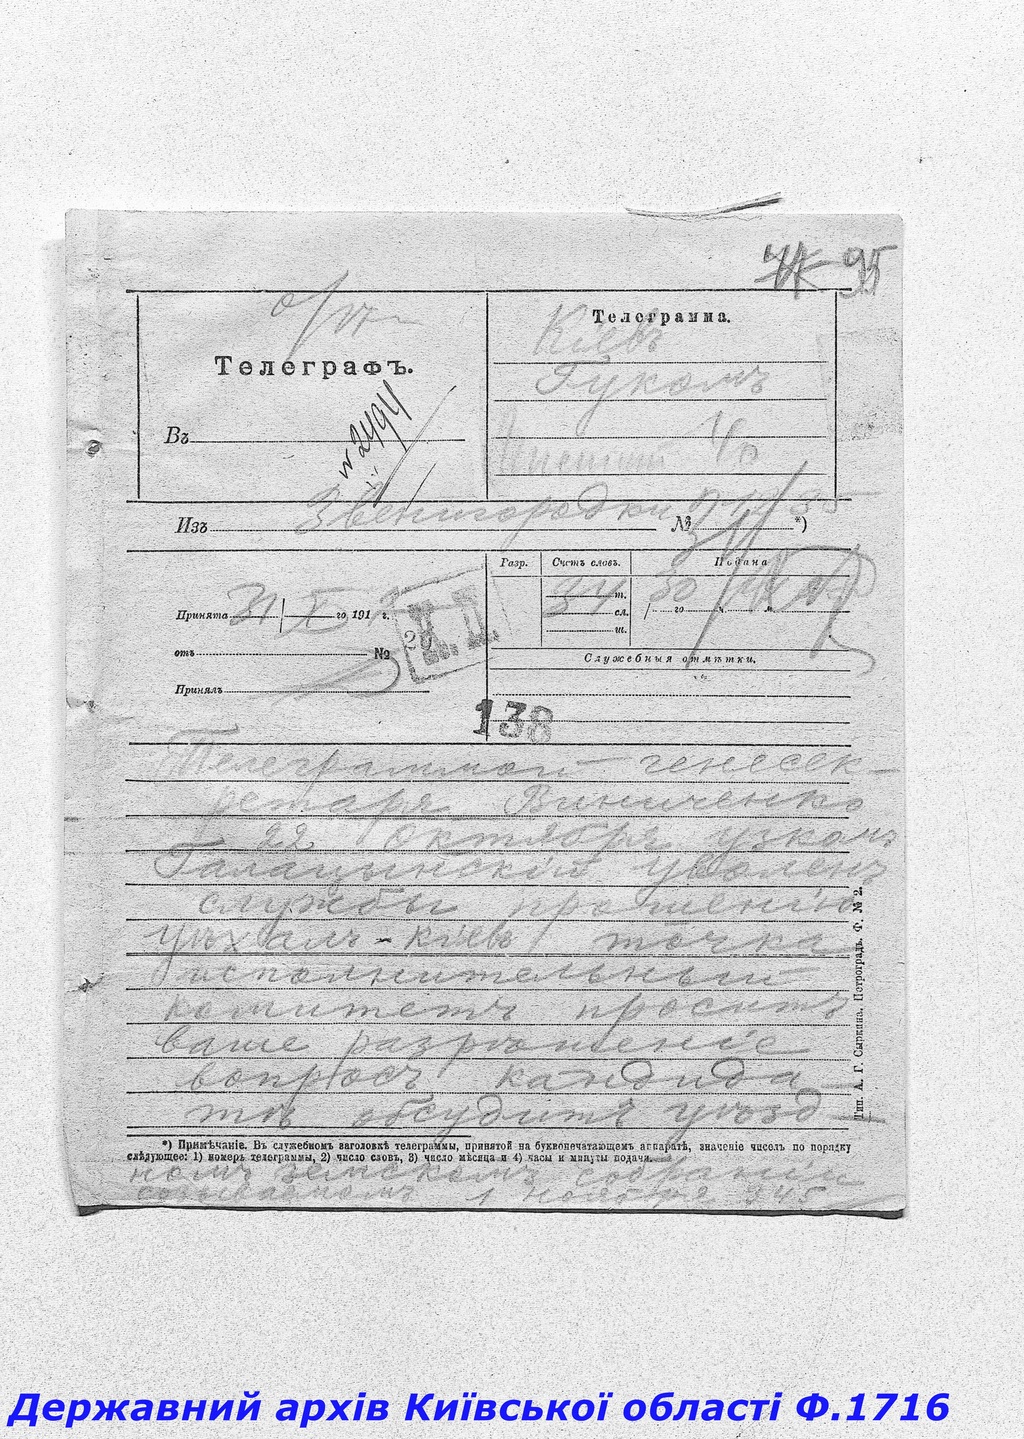 95
Телеграфъ.
Въ
№ 2494
Телеграмма.
Кіевъ
Губкомъ
Изъ Звенигородки № *)
Принята 31/X го 191 г.
отъ №
Принялъ
К.Т.
Разр. Счетъ словъ. Подана
34 т. 30
сл. го ч. м.
ш.
Служебныя отмѣтки.
138
Телеграммой генесек-
ретаря Виниченко
22 октября уѣзком
Галацынскій уволенъ
службы прошенію
уѣхалъ - Кіевъ точка
исполнительный
комитетъ проситъ
ваше разрѣшеніе
вопросъ кандида-
тѣ обсудить уѣзд-
*) Примѣчаніе. Въ служебномъ заголовкѣ телеграммы, принятой на буквопечатающемъ аппаратѣ, значеніе чиселъ по порядку
слѣдующее: 1) номеръ телеграммы, 2) число словъ, 3) число мѣсяца и 4) часы и минуты подачи.
номъ земскомъ собраніи
созываемомъ 1 ноября 245
Тип. А. Г. Сыркина. Петроградъ. Ф. № 2.
Державний архів Київської області Ф.1716